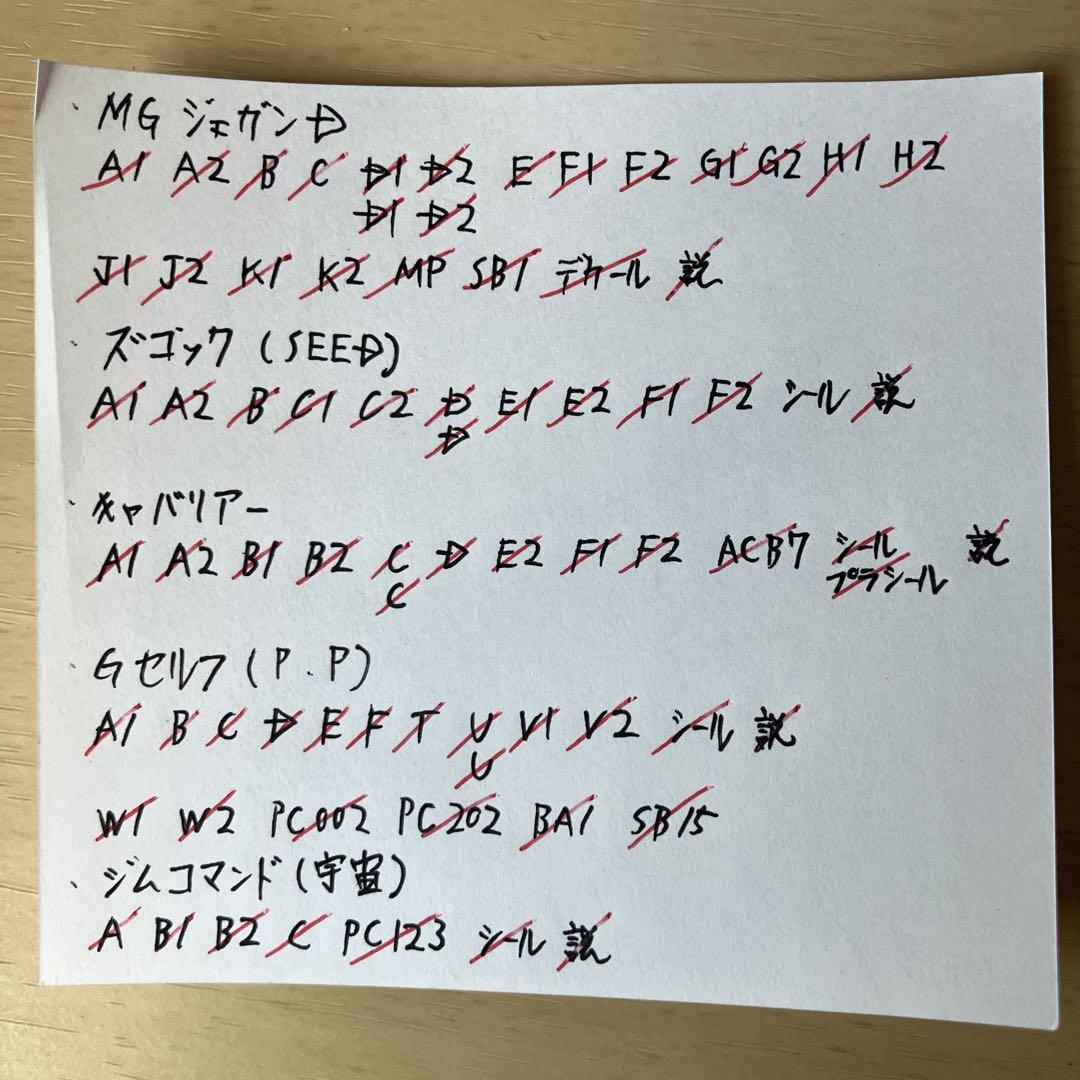 、MG ジェガンD
A1 A2 B C D1 D2 E F1 F2 G1 G2 H1 H2
D1 D2
J1 J2 K1 K2 MP SB1 デカール 説
、ズゴック(SEED)
A1 A2 B C1 C2 D E1 E2 F1 F2 シール 説
D
、キャバリアー
A1 A2 B1 B2 C D E2 F1 F2 ACB7 シール 説
C プラシール
、Gセルフ(P.P)
A1 B C D E F T U V1 V2 シール 説
U
W1 W2 PC002 PC202 BA1 SB15
、ジムコマンド(宇宙)
A B1 B2 C PC123 シール 説